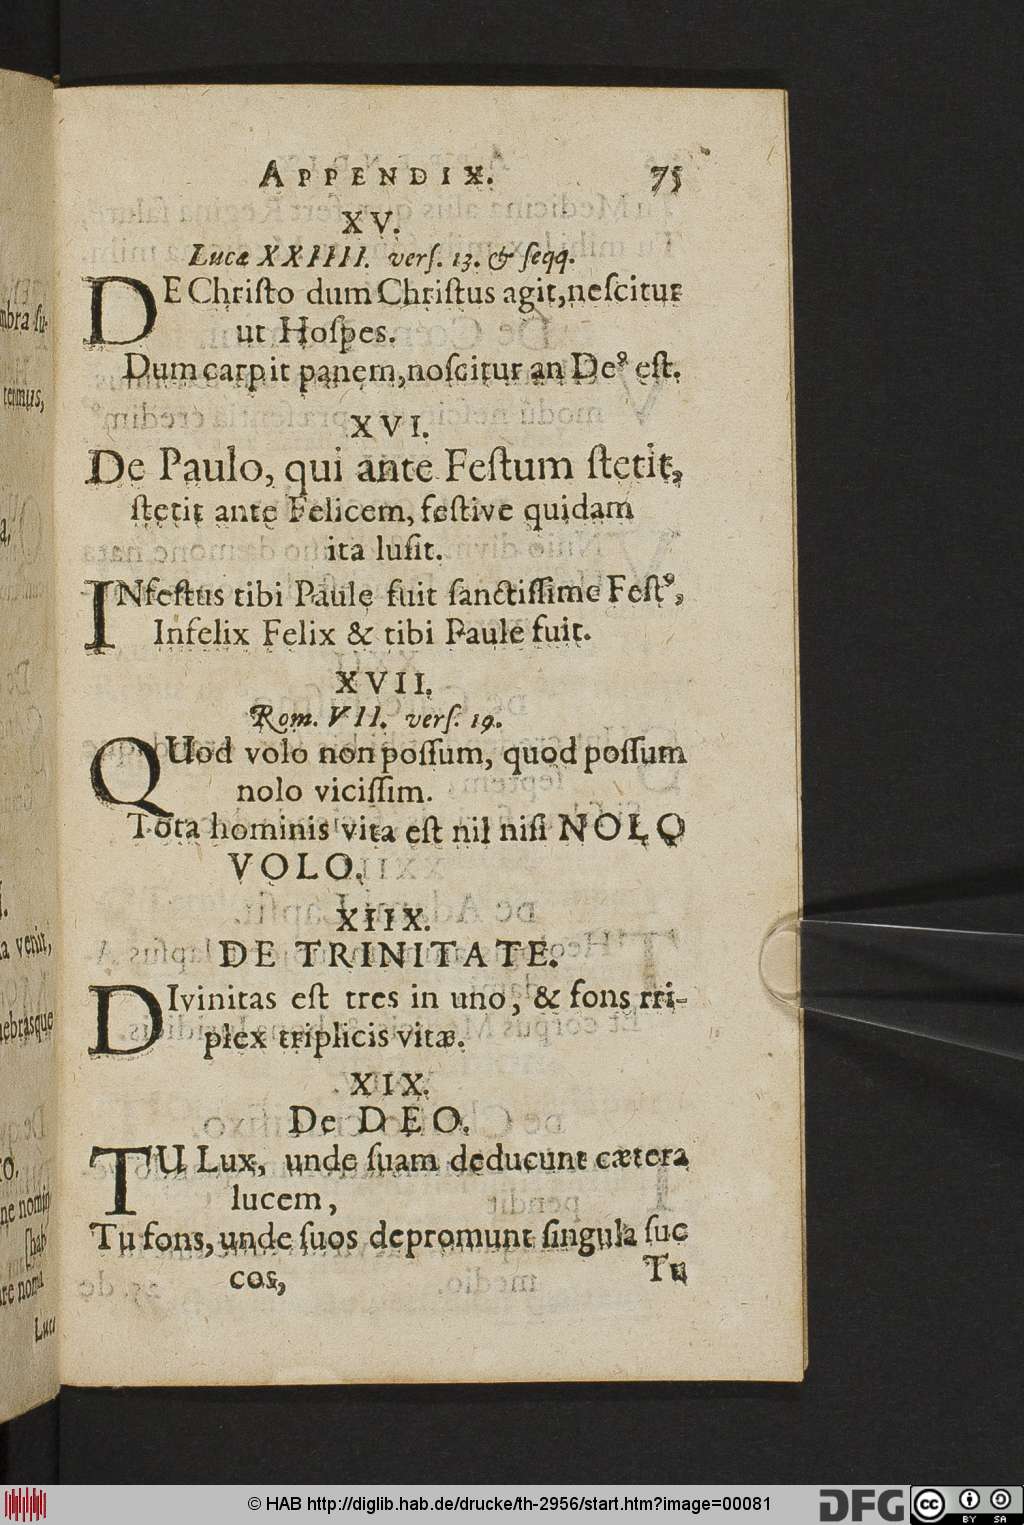 APPENDIX. 75
XV.
Lucæ XXIIII. verſ. 13. & ſeqq.
DE Chriſto dum Chriſtus agit, neſcitur
ut Hoſpes.
Dum carpit panem, noſcitur an Deꝰ eſt.
XVI.
De Paulo, qui ante Feſtum ſtetit,
ſtetit ante Felicem, feſtive quidam
ita luſit.
INfeſtus tibi Paule fuit ſanctiſſime Feſtꝰ,
Infelix Felix & tibi Paule fuit.
XVII.
Rom. VII. verſ. 19.
QUod volo non poſſum, quod poſſum
nolo viciſſim.
Tota hominis vita eſt nil niſi NOLO
VOLO.
XIIX.
DE TRINITATE.
DIvinitas eſt tres in uno, & fons tri-
plex triplicis vitæ.
XIX.
De DEO.
TU Lux, unde ſuam deducunt cætera
lucem,
Tu fons, unde ſuos depromunt ſingula ſuc
cos,
Tu
mbra ſu-
termus,
a venit,
nebrasque
ne nomin
ſhab
re noma
Luca
© HAB http://diglib.hab.de/drucke/th-2956/start.htm?image=00081
DFG
cc
BY SA